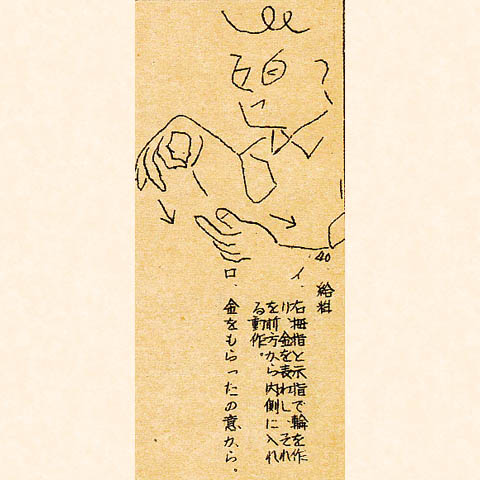 40
給料
イ、右拇指と示指で輪を作
り、金を表わし、それ
を前方から内側に入れ
る動作。
ロ、金をもらったの意から。